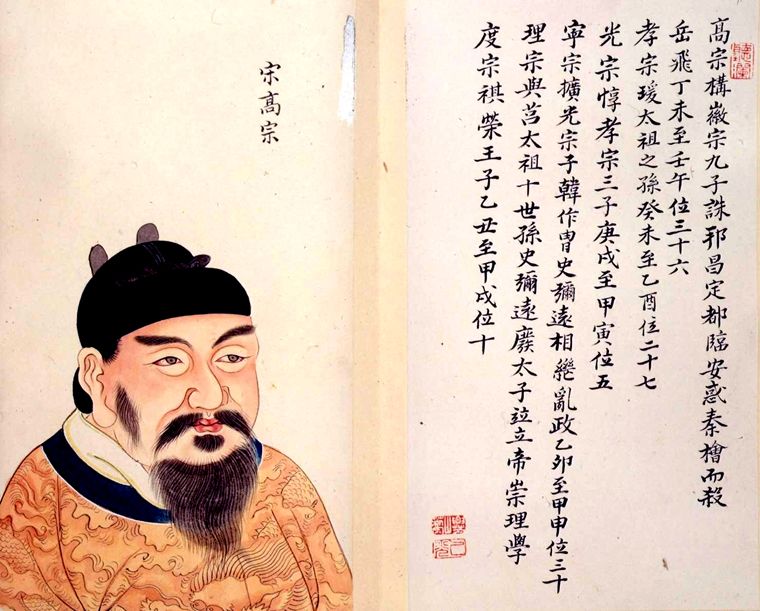 髙宗構徽宗九子誅邦昌定都臨安惑秦檜而殺
岳飛丁未至壬午位三十六
孝宗瑗太祖之孫癸未至乙酉位二十七
光宗惇孝宗三子庚戌至甲寅位五
寧宗擴光宗子韓作冑史彌遠相繼亂政乙卯至甲申位三十
理宗與莒太祖十世孫史彌遠廢太子竝立帝崇理學
度宗祺榮王子乙丑至甲戌位十
宋髙宗